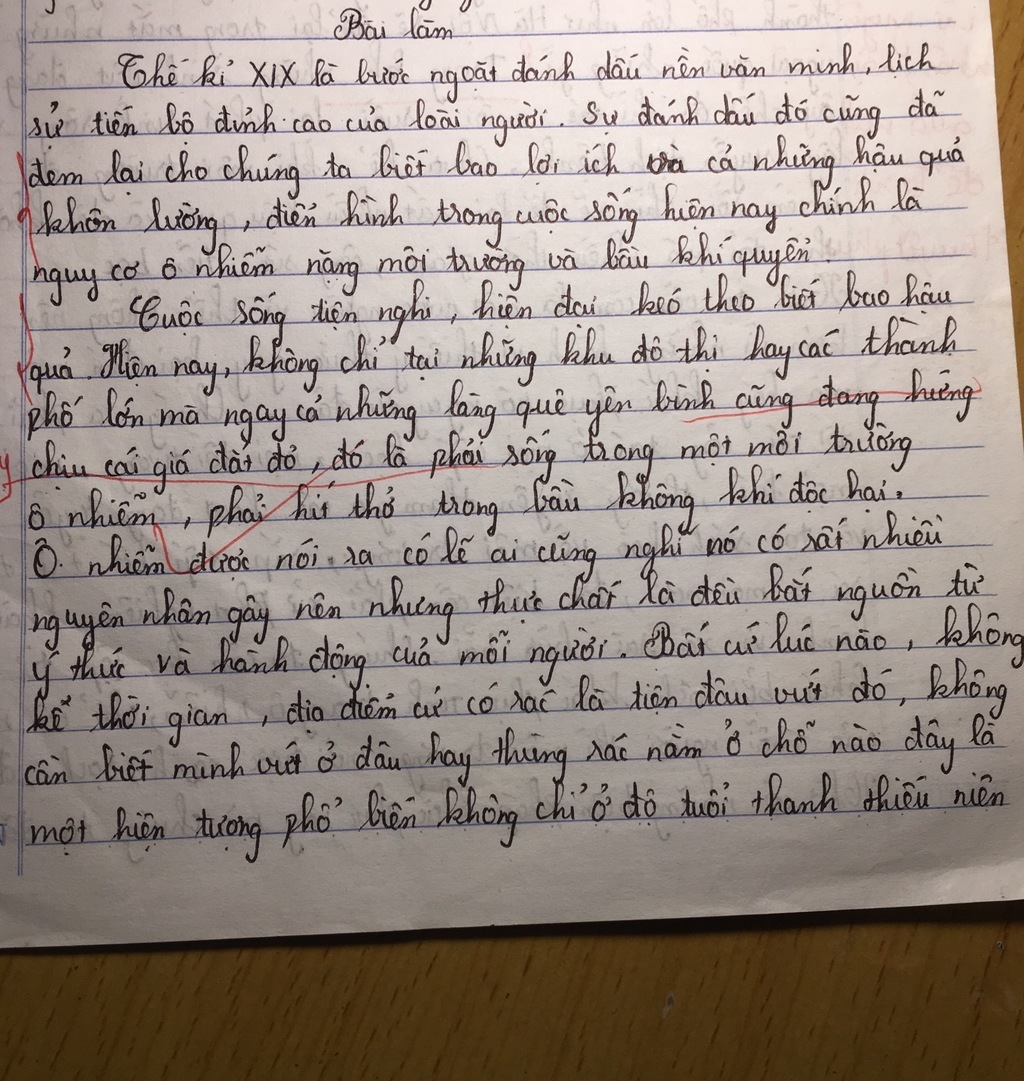 Bài làm
Thế kỉ XIX là bước ngoặt đánh dấu nền văn minh, lịch
sử tiến bộ đỉnh cao của loài người. Sự đánh dấu đó cũng đã
đem lại cho chúng ta biết bao lợi ích và cả những hậu quả
khôn lường, điển hình trong cuộc sống hiện nay chính là
nguy cơ ô nhiễm nặng môi trường và bầu khí quyển.
Cuộc sống tiện nghi, hiện đại kéo theo biết bao hậu
quả. Hiện nay, không chỉ tại những khu đô thị hay các thành
phố lớn mà ngay cả những làng quê yên bình cũng đang hứng
chịu cái giá đắt đỏ, đó là phải sống trong một môi trường
ô nhiễm, phải hít thở trong bầu không khí độc hại.
Ô nhiễm được nói ra có lẽ ai cũng nghĩ nó có rất nhiều
nguyên nhân gây nên nhưng thực chất là đều bắt nguồn từ
ý thức và hành động của mỗi người. Bất cứ lúc nào, không
kể thời gian, địa điểm cứ có rác là tiện đâu vứt đó, không
cần biết mình vứt ở đâu hay thùng rác nằm ở chỗ nào đây là
một hiện tượng phổ biến không chỉ ở độ tuổi thanh thiếu niên